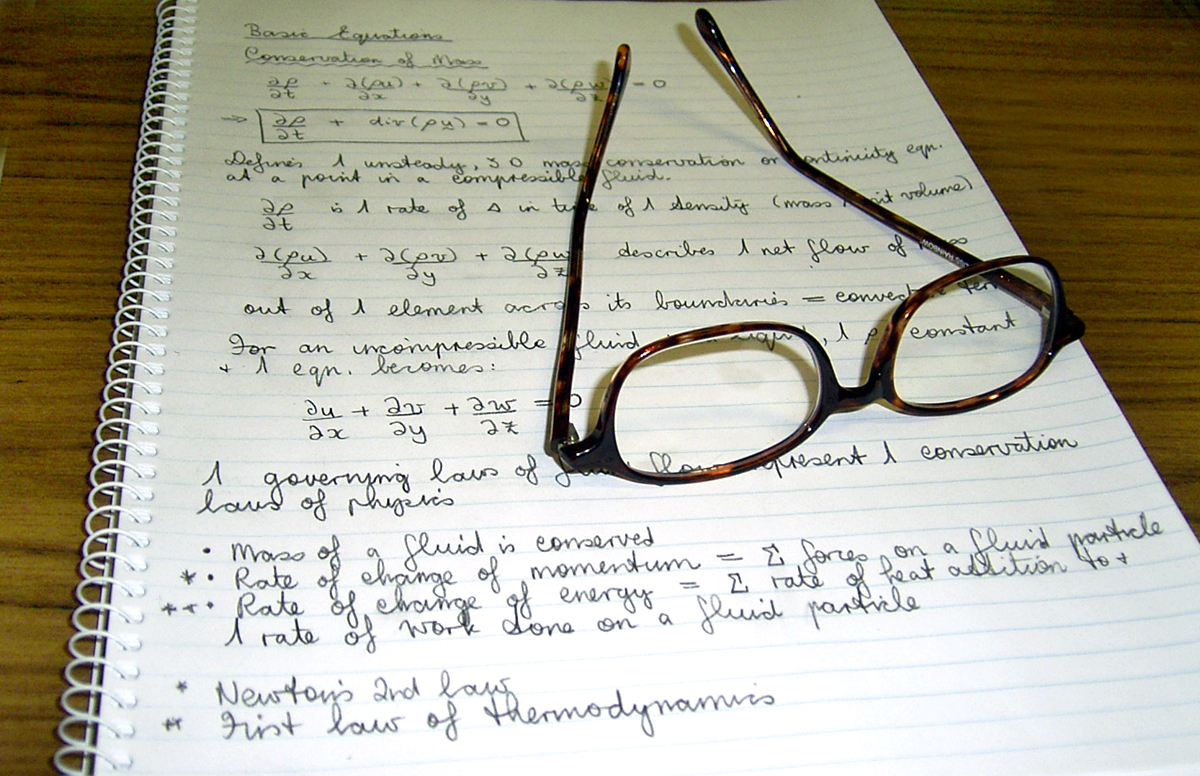 Basic Equations
Conservation of Mass
∂ρ/∂t + ∂(ρu)/∂x + ∂(ρv)/∂y + ∂(ρw)/∂z = 0
⇒ ∂ρ/∂t + div(ρu) = 0
Defines 1 unsteady, 3D mass conservation or continuity eqn.
at a point in a compressible fluid.
∂ρ/∂t is 1 rate of Δ in time of 1 density (mass unit volume)
∂(ρu)/∂x + ∂(ρv)/∂y + ∂(ρw)/∂z describes 1 net flow of mass
out of 1 element across its boundaries = convective term
For an incompressible fluid liquid, 1 ρ constant
+ 1 eqn. becomes:
∂u/∂x + ∂v/∂y + ∂w/∂z = 0
1 governing laws of flow represent 1 conservation
laws of physics
• Mass of a fluid is conserved
* • Rate of change of momentum = Σ forces on a fluid particle
** • Rate of change of energy = Σ rate of heat addition to +
1 rate of work done on a fluid particle
* Newton's 2nd law
** First law of thermodynamics